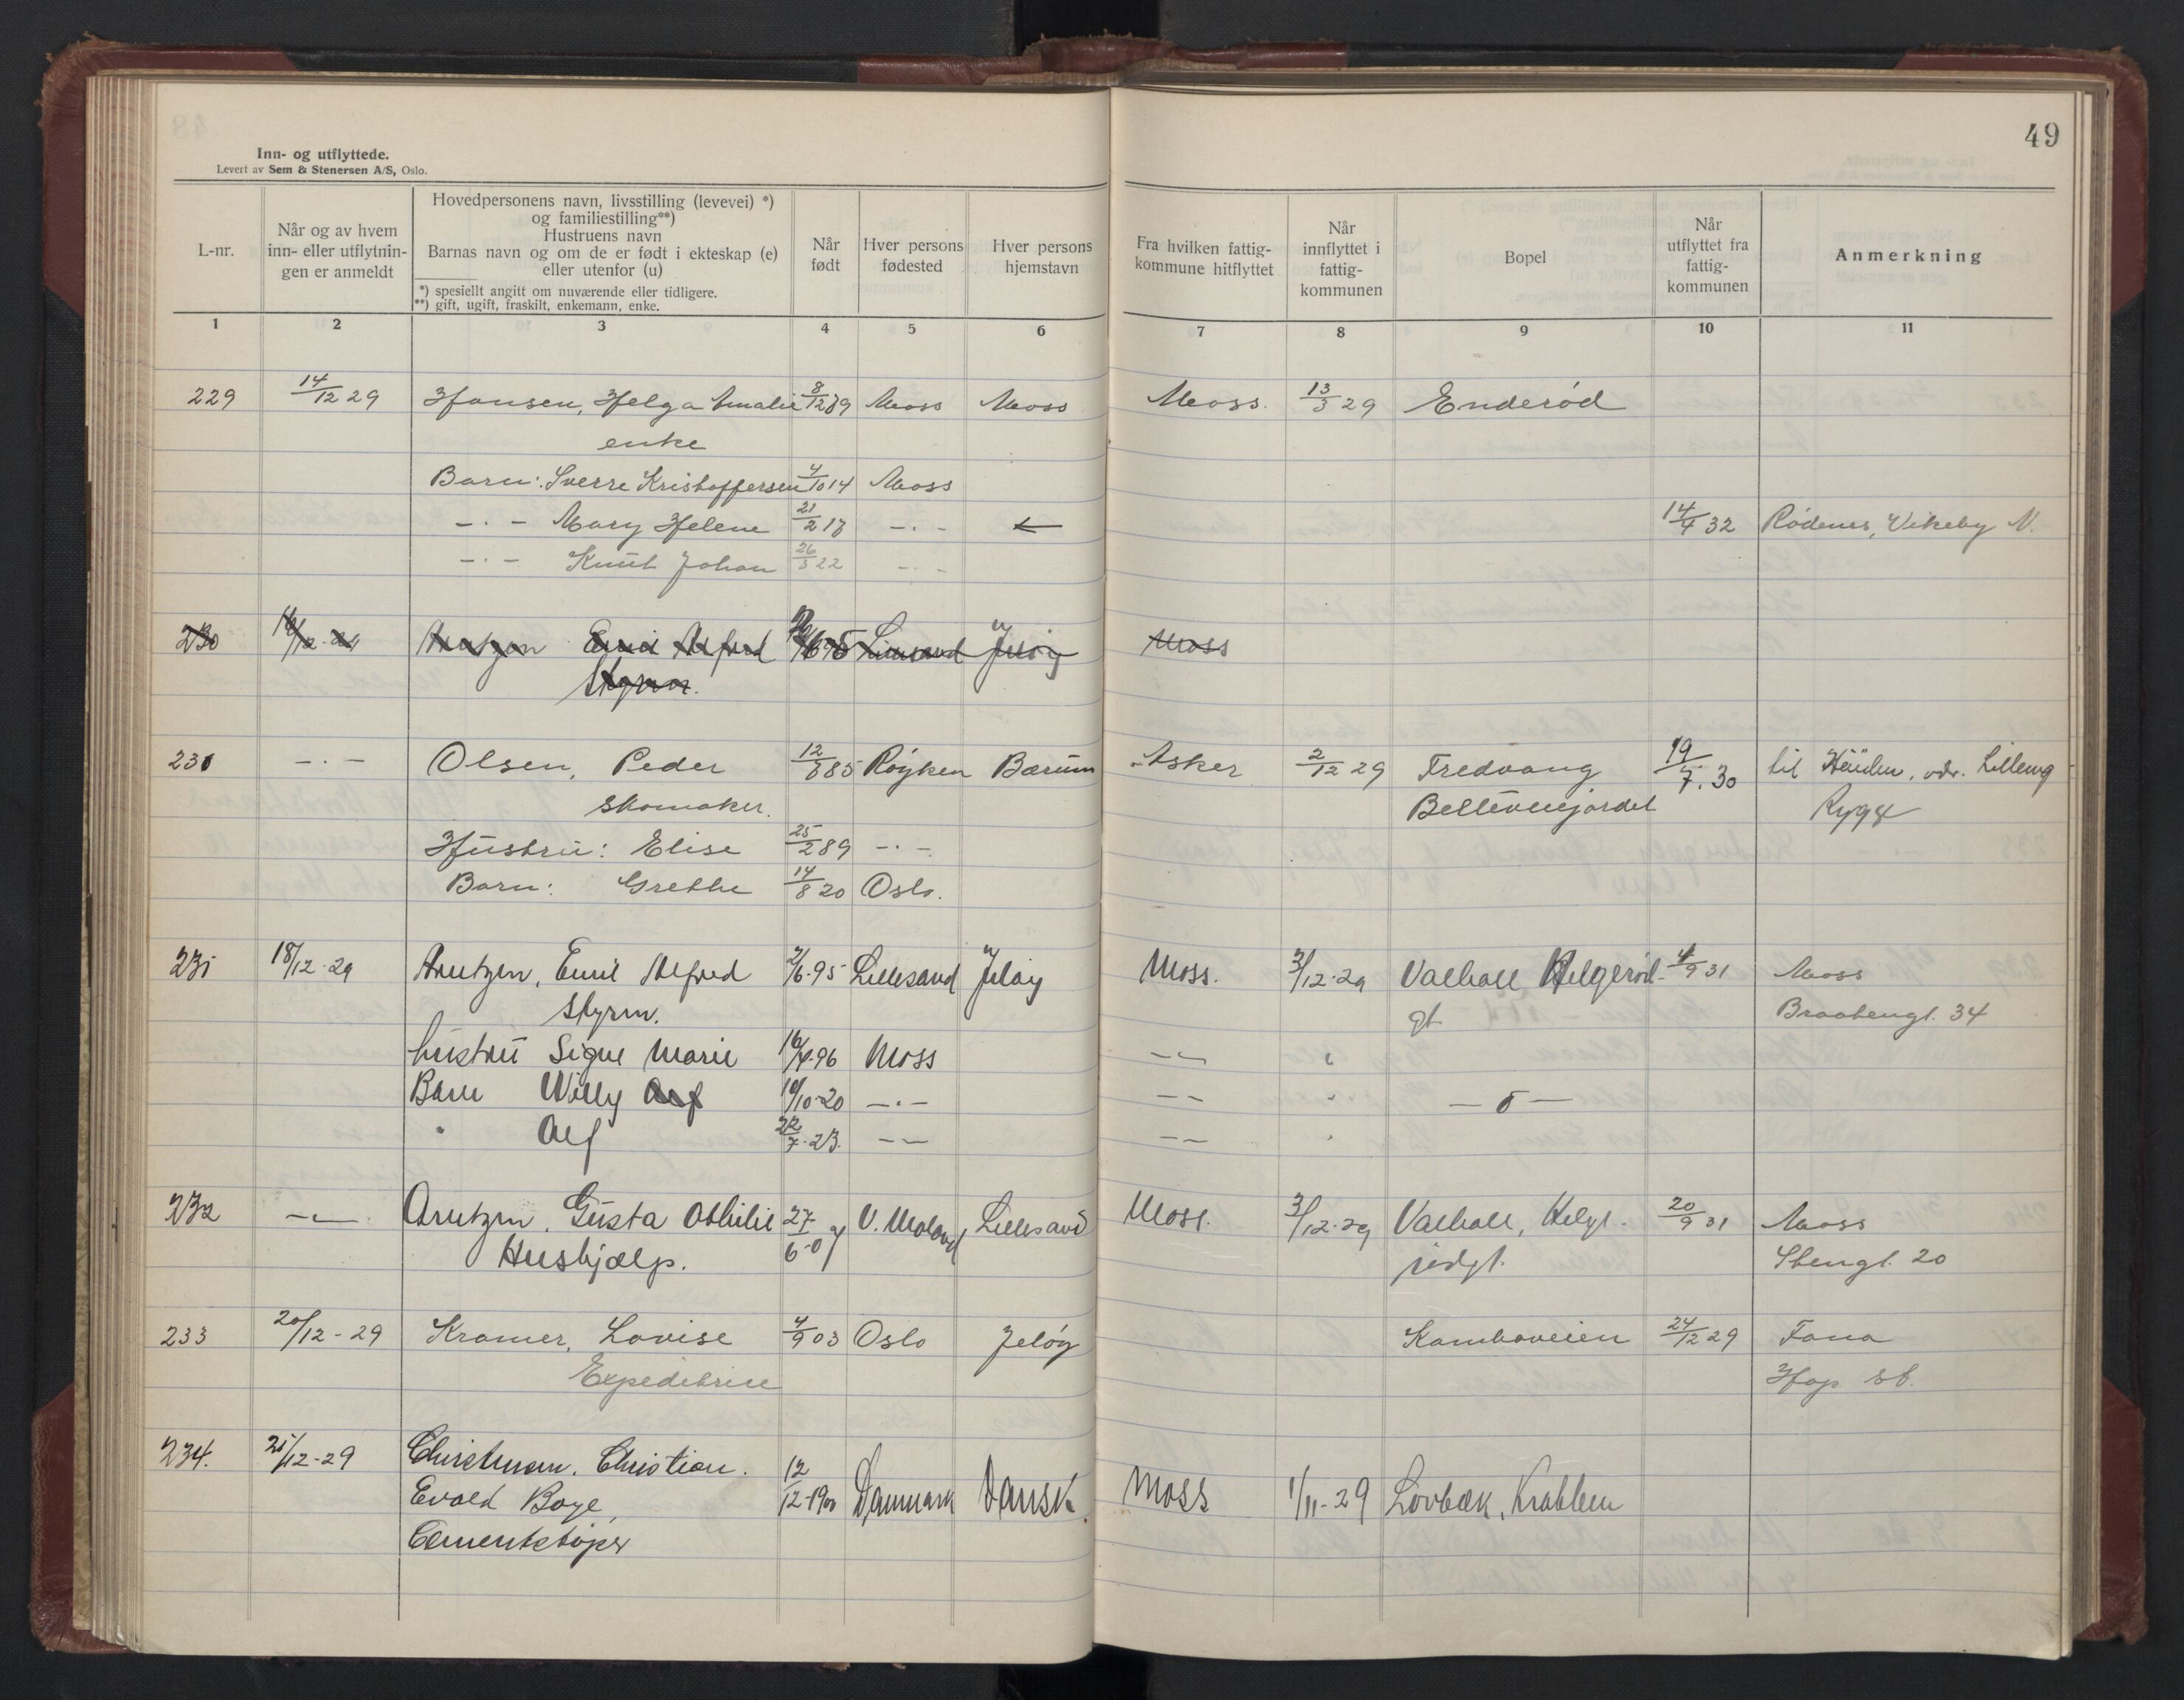 49
Inn- og utflyttede.
Levert av Sem & Stenersen A/S, Oslo.
L-nr.
Når og av hvem inn- eller utflytnin-gen er anmeldt
Hovedpersonens navn, livsstilling (levevei) *)
og familiestilling**)
Hustruens navn
Barnas navn og om de er født i ekteskap (e)
eller utenfor (u)
*) spesiellt angitt om nuværende eller tidligere.
**) gift, ugift, fraskilt, enkemann, enke.
Når født
Hver persons fødested
Hver persons hjemstavn
Fra hvilken fattig-kommune hitflyttet
Når innflyttet i fattig-kommunen
Bopel
Når utflyttet fra fattig-kommunen
Anmerkning
1 2 3 4 5 6 7 8 9 10 11
229 14/12 29 Hansen, Helga Amalie 8/12 89 Moss Moss Moss. 13/3 29 Enderød
enke
Barn: Sverre Kristoffersen 4/10 14 Moss
-·- Mary Helene 21/2 18 -·- ← 14/4 32 Rødenes, Vikeby N.
-·- Knut Johan 26/3 22 -·-
230 Arntzen Emil Alfred Lillesand Jeløy Moss
Styrm.
230 -·- Olsen, Peder 12/8 85 Røyken Bærum Asker 2/12 29 Fredvang 19/7. 30 til
skomaker. Bellevuejordet Rygge
Hustru: Elise 25/2 89 -·-
Barn: Grethe 14/8 20 Oslo.
231 18/12-29 Arntzen, Emil Alfred 2/6-95 Lillesand Jeløy Moss. 3/12-29 Valhall Helgerød- 4/9 31 Moss
styrm. gt Braatengt. 34
hustru Signe Marie 16/4-96 Moss -·- "
Barn Willy Alf 10/10-20 -·- -- " - 5 -
" Alf 22/7-23. -- -- "
232 -·- Arntzen, Gusta Othilie 27/6-07 V. Moland Lillesand Moss. 3/12-29 Valhall, Helge- 20/9 31 Moss
Hushjælp. rødgt. Stengt. 20
233 20/12-29 Kramer, Lovise 4/9 03 Oslo Jeløy Kamboveien 24/12 29 Fana
Expeditrice Hop st.
234. 21/12-29 Christensen. Christian. 12/12-1900 Danmark Dansk Moss 1/11-29 Lovbæk, Krabben
Evald Boye,
Cementstøper